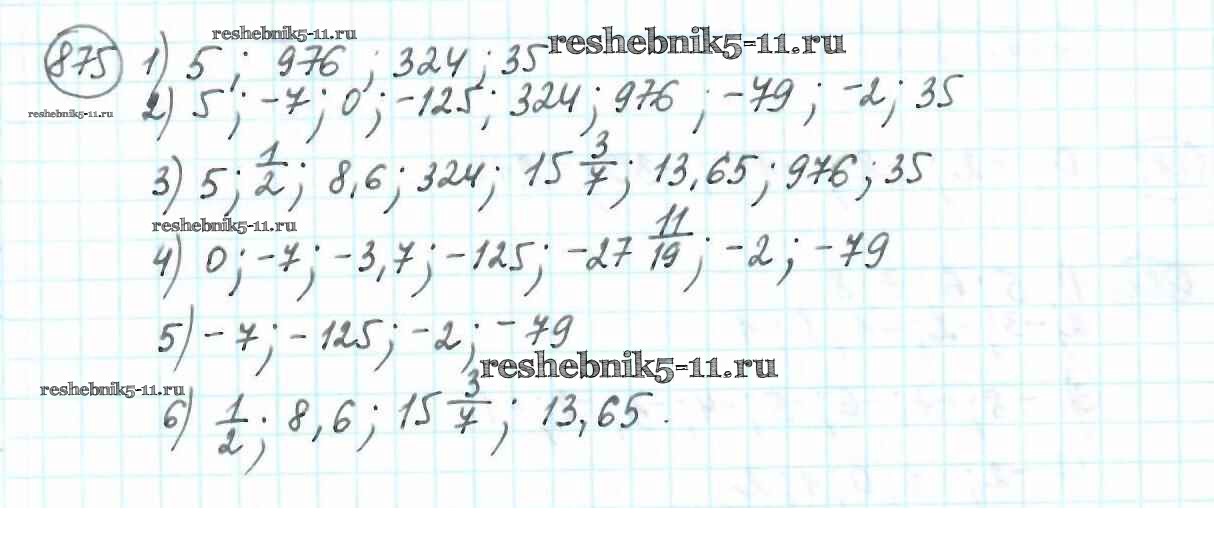 reshebnik5-11.ru
reshebnik5-11.ru
875 1) 5; 976; 324; 35
reshebnik5-11.ru
2) 5; -7; 0; -125; 324; 976; -79; -2; 35
3) 5; 1/2; 8,6; 324; 15 3/7; 13,65; 976; 35
reshebnik5-11.ru
4) 0; -7; -3,7; -125; -27 11/19; -2; -79
5) -7; -125; -2; -79
reshebnik5-11.ru
reshebnik5-11.ru
6) 1/2; 8,6; 15 3/7; 13,65.